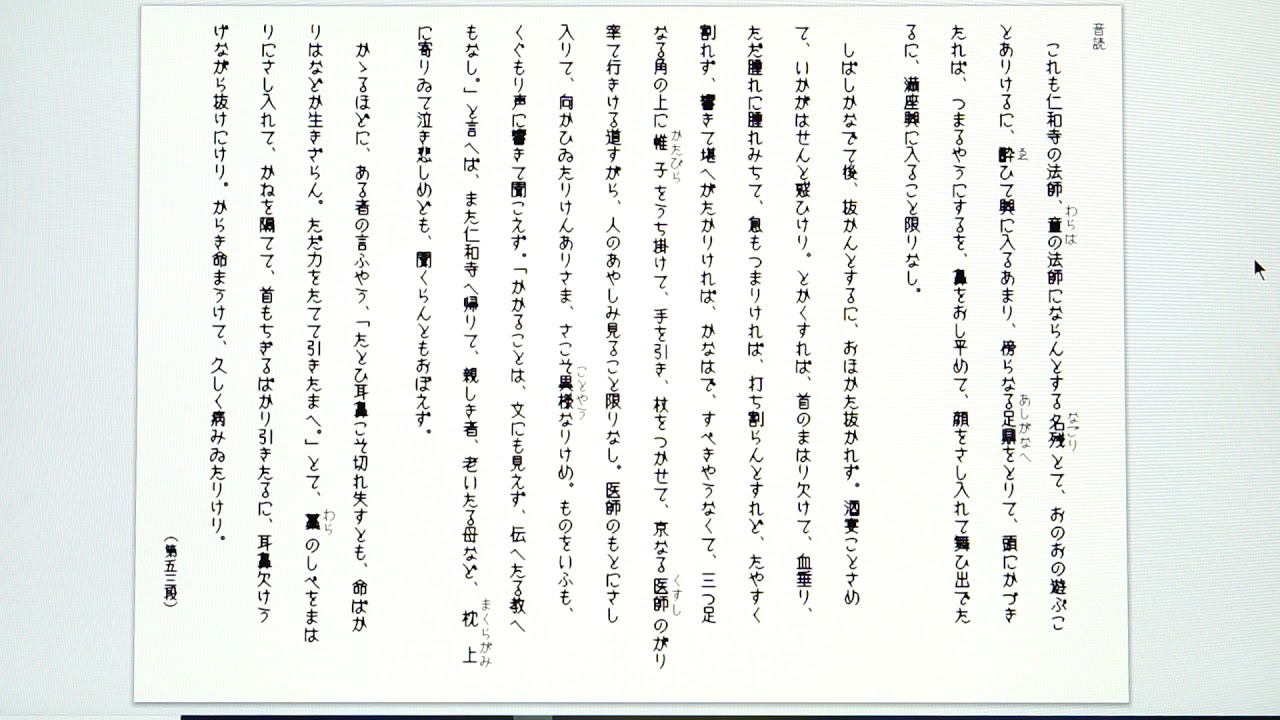 音読
これも仁和寺の法師、童の法師にならんとする名残とて、おのおの遊ぶこ
わらは
なごり
とありけるに、酔ひて興に入るあまり、傍らなる足鼎をとりて、頭にかづき
ゑ
あしがなへ
たれば、つまるやうにするを、鼻をおし平めて、顔をさし入れて舞ひ出でた
るに、満座興に入ること限りなし。
しばしかなでて後、抜かんとするに、おほかた抜かれず。酒宴ことさめ
て、いかがはせんと惑ひけり。とかくすれば、首のまはり欠けて、血垂り、
ただ腫れに腫れみちて、息もつまりければ、打ち割らんとすれど、たやすく
割れず、響きて堪へがたかりければ、かなはで、すべきやうなくて、三つ足
なる角の上に帷子をうち掛けて、手を引き、杖をつかせて、京なる医師のがり
かたびら
くすし
率て行きける道すがら、人のあやしみ見ること限りなし。医師のもとにさし
入りて、向かひゐたりけんありさま、さこそ異様なりけめ。ものをいふも、
ことやう
くぐもり声に響きて聞こえず。「かかることは、文にも見えず、伝へたる教へ
もなし。」と言へば、また仁和寺へ帰りて、親しき者、老いたる母など、枕上
まくらがみ
に寄りゐて泣き悲しめども、聞くらんともおぼえず。
かゝるほどに、ある者の言ふやう、「たとひ耳鼻こそ切れ失すとも、命ばか
りはなどか生きざらん。ただ力をたてて引きたまへ。」とて、藁のしべをまは
わら
りにさし入れて、かねを隔てて、首もちぎるばかり引きたるに、耳鼻欠けう
げながら抜けにけり。からき命まうけて、久しく病みゐたりけり。
（第五三段）